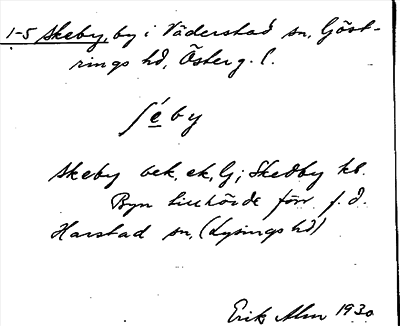 1-5 Skeby, by i Väderstad sn, Göst-
rings hd, Österg. l.
ʃéby
Skeby ek, G; Skedby kb.
Byn tillhörde förr f.d.
Harstad sn, (Lysings hd)
Erik Alm 1930